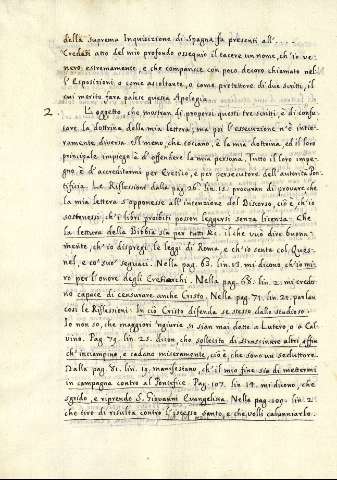 della Suprema Inquisizione di Spagna fa presenti all'...
Credei atto del mio profondo ossequio il tacere un nome, ch'io ve-
nero estremamente, e che comparisce con poco decoro chiamato nel-
l'Esposizioni, o come ascoltante, o come protettore di due scritti, il
cui merito farà palese questa Apologia.
2. L'oggetto che mostran di proporsi questi tre scritti, è di confu-
tare la dottrina della mia lettera; ma poi l'esecuzione n'è intie-
ramente diversa. Il meno, che toccano, è la mia dottrina, ed il loro
principale impiego è d'offendere la mia persona. Tutto il loro impe-
gno è d'accreditarmi per Eretico, e per persecutore dell'autorità Pon-
tificia. Le Riflessioni dalla pag. 26. lin. 15. procuran di provare che
la mia lettera s'opponesse all'intenzione del Discorso, cioè ch'io
sostenessi, ch'i libri proibiti posson leggersi senza licenza. Che
la lettura della Bibbia sia per tutti &c. il che vuol dire buona-
mente, ch'io dispregi le leggi di Roma, e ch'io senta col Ques-
nel, e co' suoi seguaci. Nella pag. 63. lin. 13. mi dicono, ch'io mi-
ro per l'onore degli Eretiarchi. Nella pag. 68. lin. 2. mi credo-
no capace di censurare anche Cristo. Nella pag. 71. lin. 21. parlan
così le Riflessioni. In ciò Cristo difenda se stesso dallo studioso.
Io non so, che maggiori ingiurie si sian mai dette a Lutero, o a Cal-
vino. Pag. 79. lin. 23. dicon, che sollecito di strascinare altri affin
ch'inciampino, e cadano miseramente, cioè, che sono un seduttore.
Dalla pag. 81. lin. 19. manifestano, ch'il mio fine sia di mettermi
in campagna contro al Pontefice. Pag. 107. lin. 14. mi dicono, che
sgrido, e riprendo S. Giovanni Evangelista. Nella pag. 109. lin. 2.
che tiro di risulta contro l'istesso santo, e che volli calunniarlo.